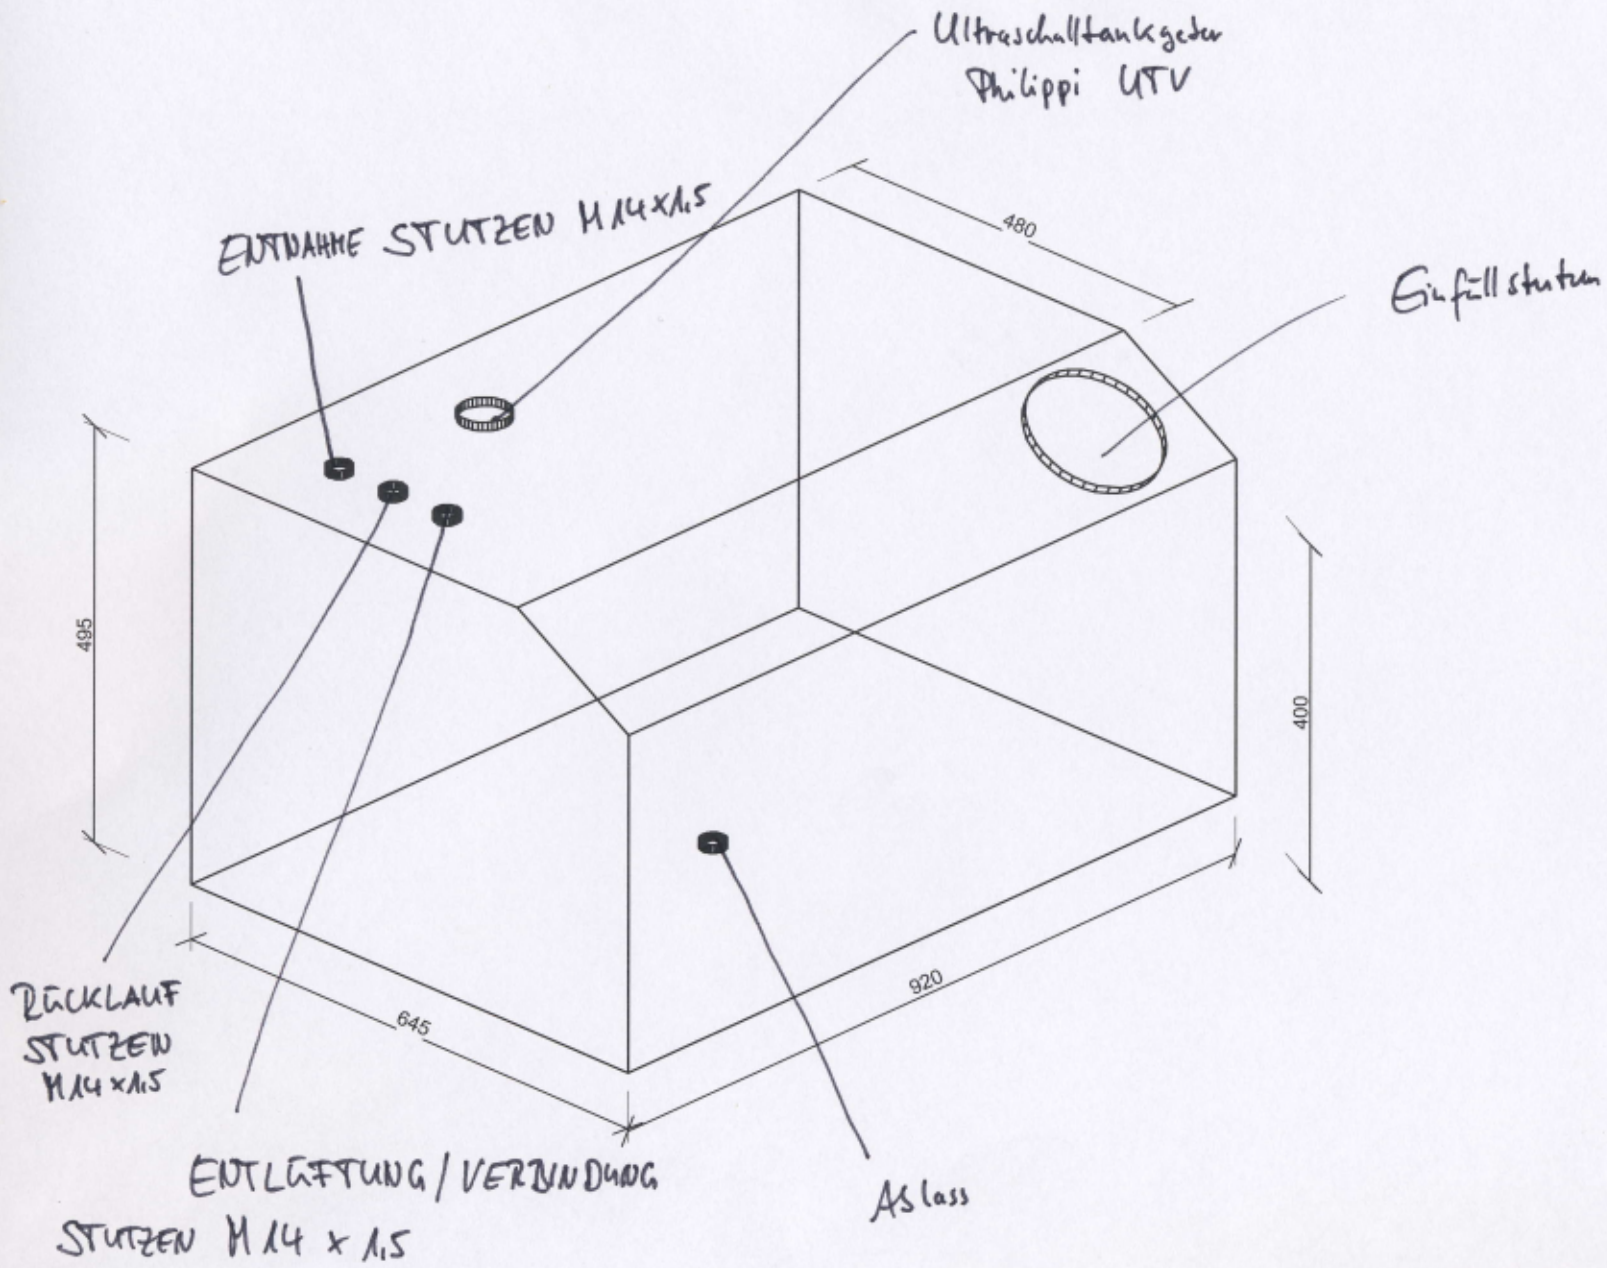 Ultraschalltankgeber
Philippi UTV
ENTNAHME STUTZEN M14x1,5
480
Einfüllstutzen
495
400
920
645
RÜCKLAUF
STUTZEN
M14x1,5
ENTLÜFTUNG/VERBINDUNG
STUTZEN M14 x 1,5
Ablass